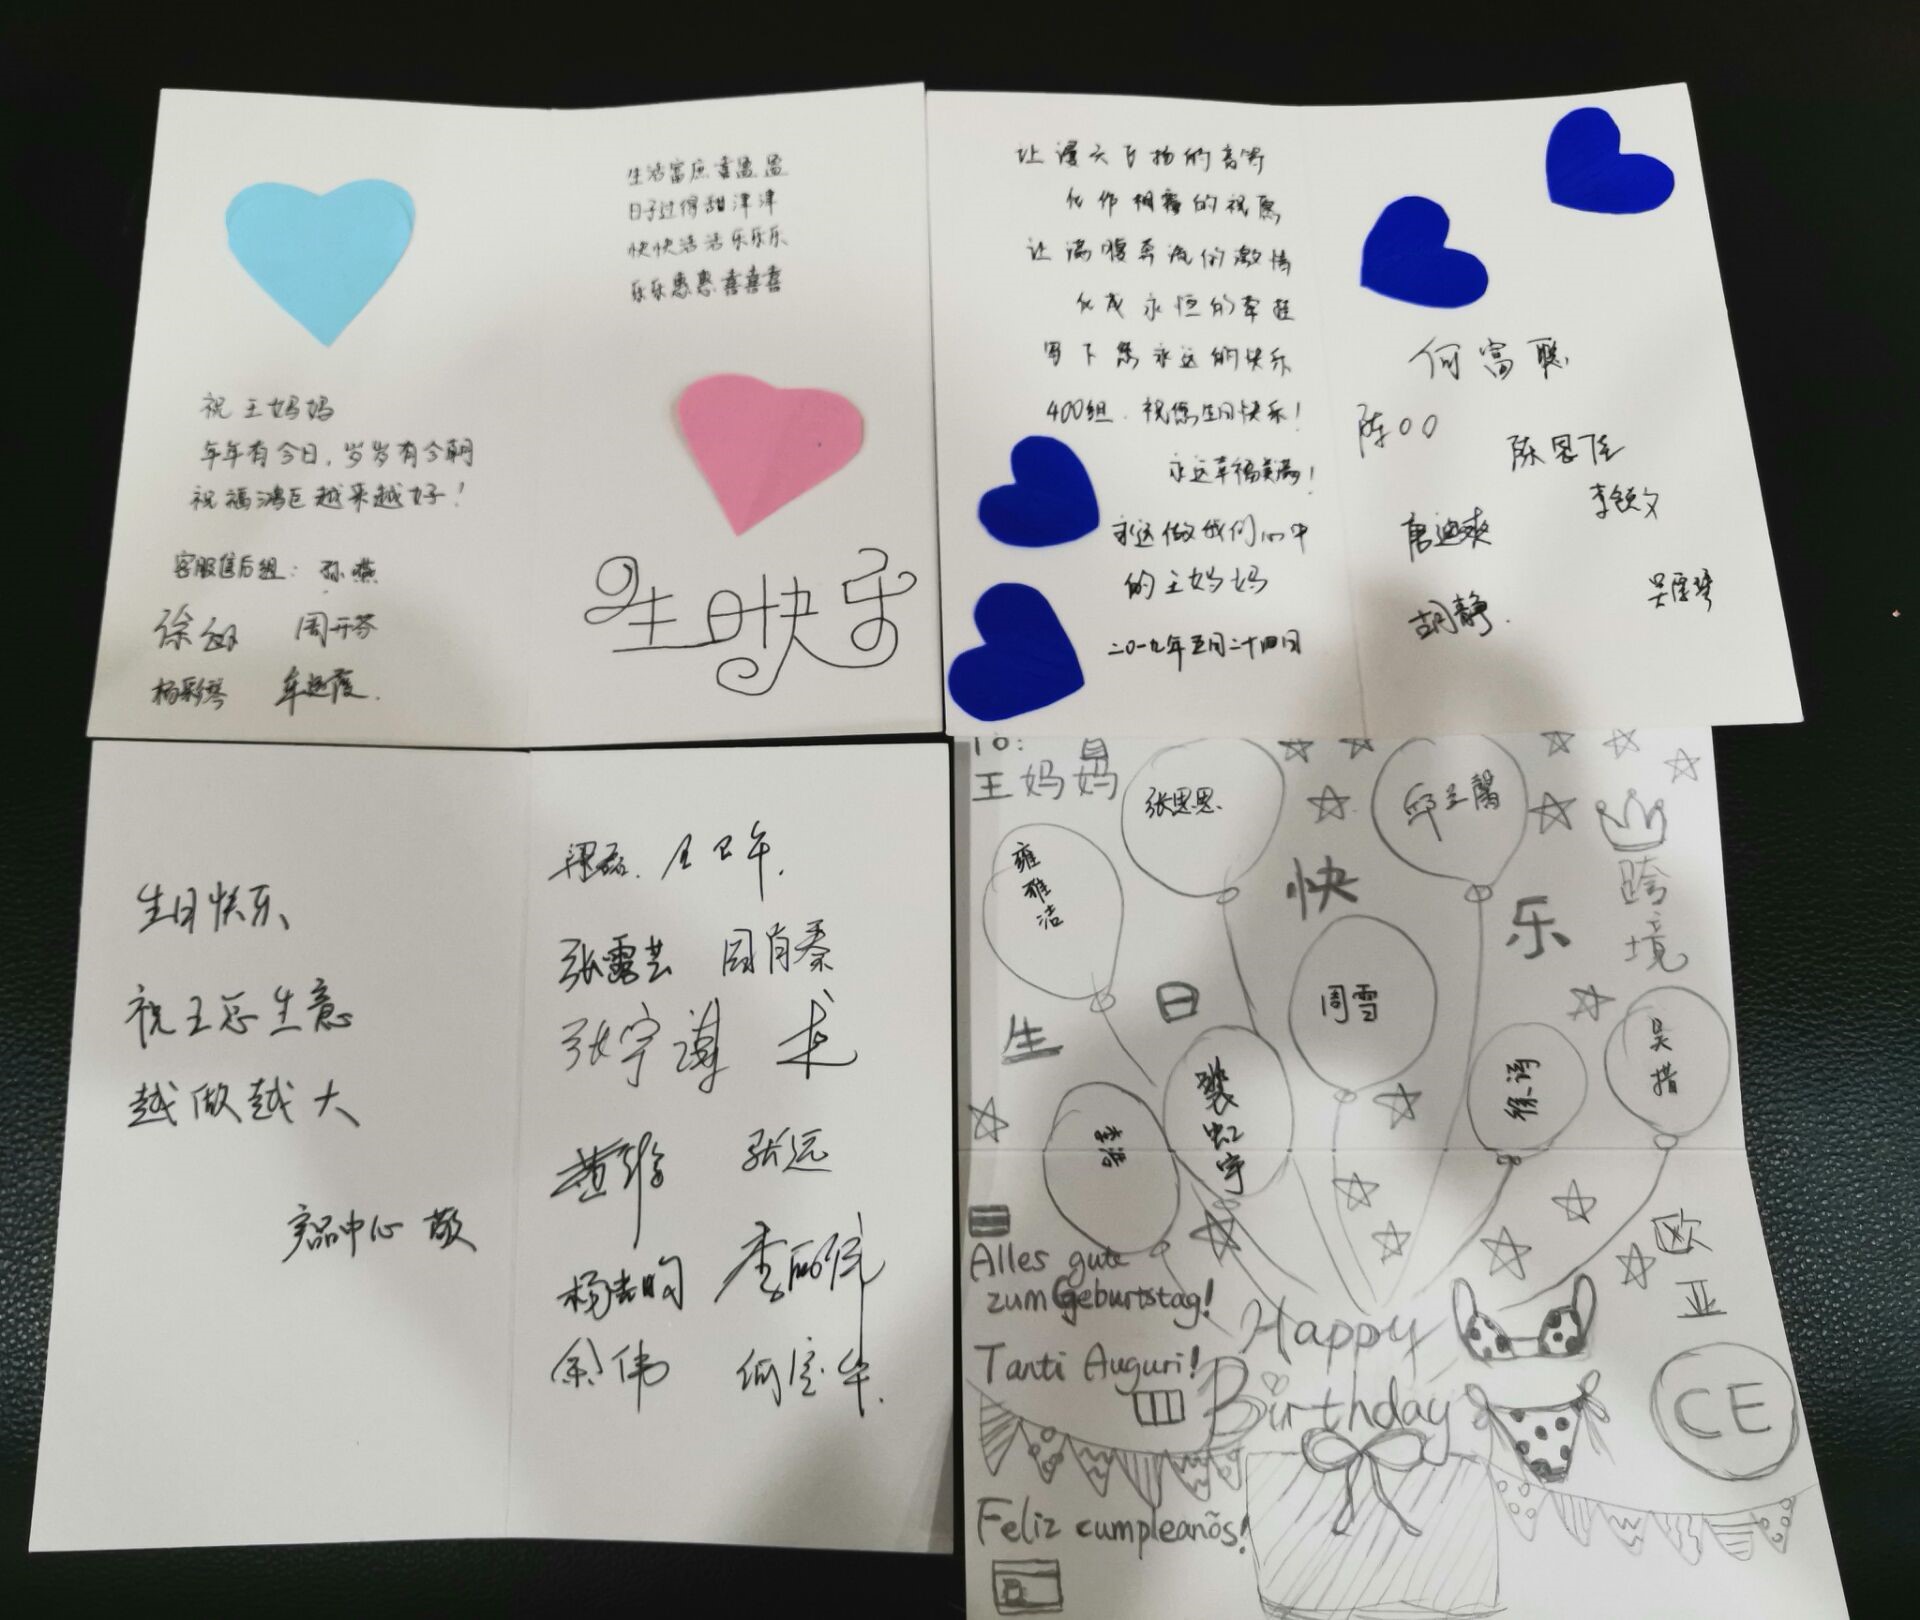 祝王妈妈
年年有今日，岁岁有今朝
祝福鸿巨越来越好！
客服售后组：孙燕
周开芬
杨彩琴
生活富庶喜盈盈
日子过得甜津津
快快活活乐乐乐
乐乐惠惠喜喜喜
生日快乐
让漫天飞扬的音符
化作相擁的祝愿
让满腹奔流的激情
化成永恒的牵挂
写下您永远的快乐
400组．祝您生日快乐！
永远幸福美满！
永远做我们心中
的王妈妈
二0一九年五月二十四日
何富聪
陈00
陈思佳
唐迪爽
胡静
生日快乐
祝王总生意
越做越大
产品中心 敬
张露芸
张宇谦
张远
余伟
To:
王妈妈
张思思
邱兰馨
雍雅洁
周雪
吴措
裴虹宇
李浩
生日快乐
跨境
欧亚
Alles gute
zum Geburtstag!
Tanti Auguri!
Feliz cumpleanõs!
Happy
Birthday
CE